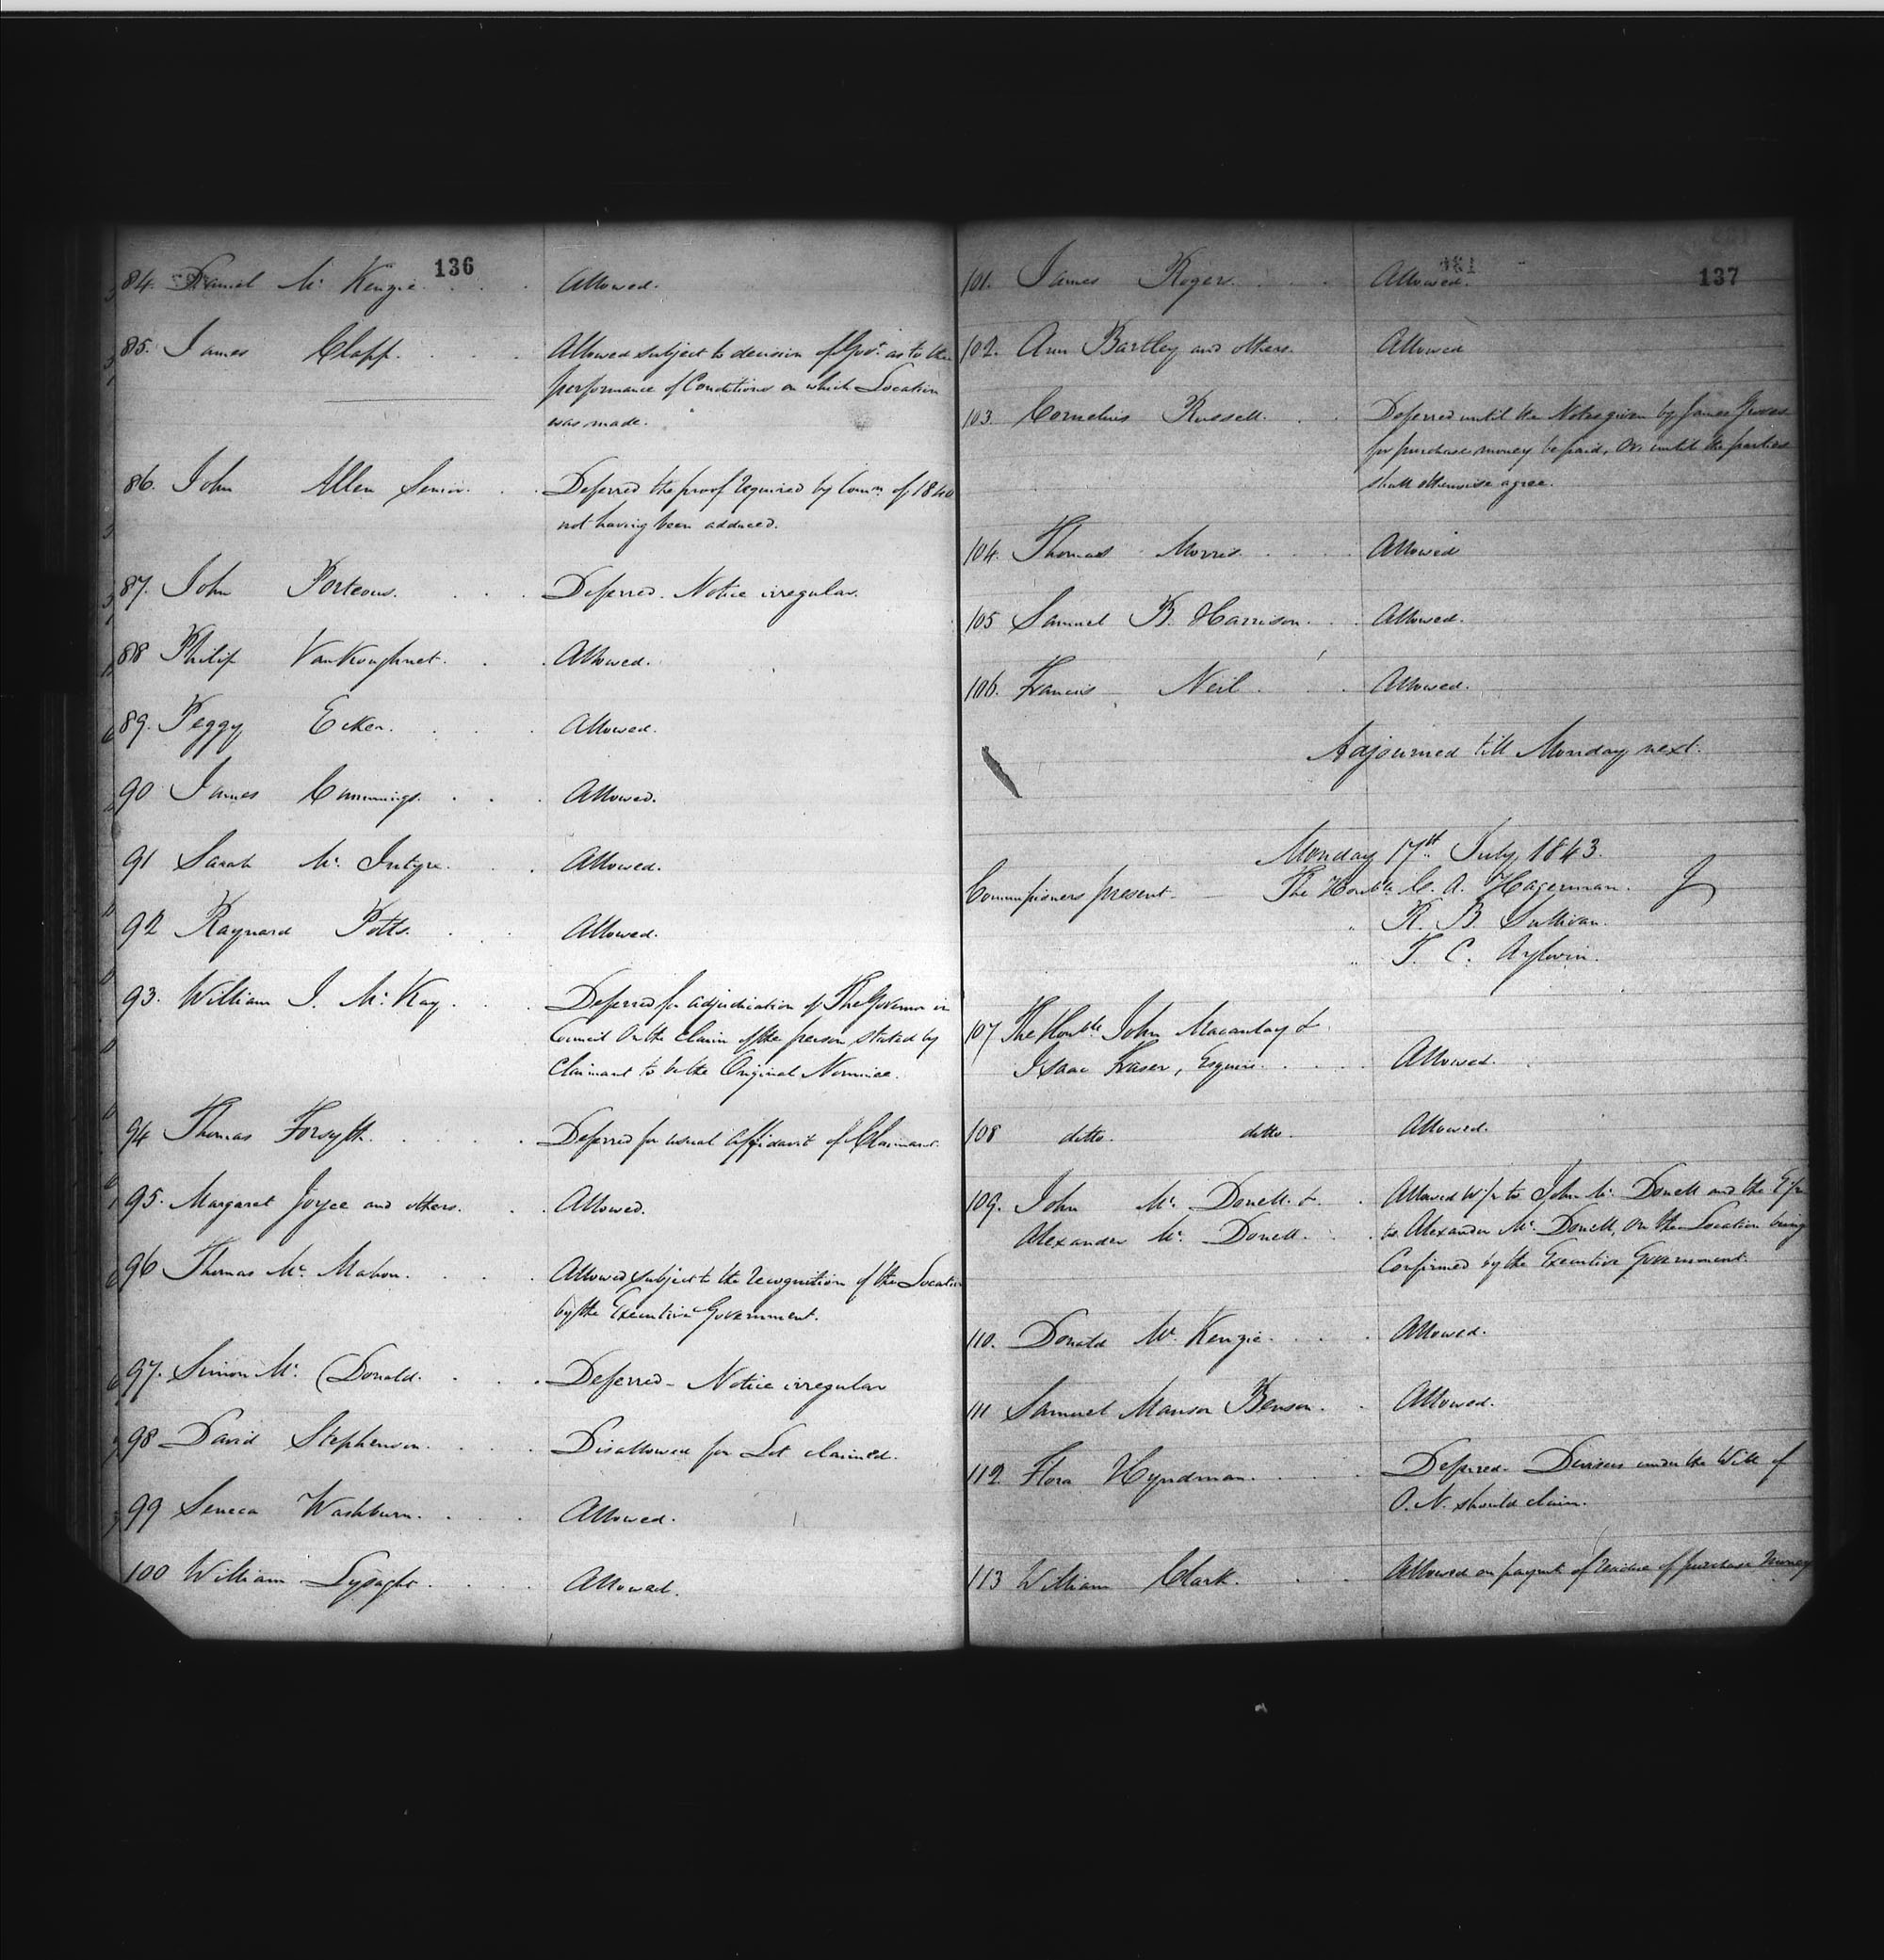 136
84. Daniel Mc Kenzie. Allowed.
85. James Clapp. Allowed subject to decision of Govt. as to the
performance of Conditions on which Location
was made.
86. John Allen Senior. Deferred the proof required by Comrs. of 1840
not having been adduced.
87. John Porteous. Deferred. Notice irregular.
88 Philip VanKoughnet. Allowed.
89. Peggy Ecker. Allowed.
90 James Cummings. Allowed.
91 Sarah Mc Intyre. Allowed.
92 Raynard Potts. Allowed.
93. William J. Mc Kay. Deferred for adjudication of The Governor in
Council on the Claim of the person stated by
Claimant to be the Original Nominee.
94 Thomas Forsyth. Deferred for usual affidavit of Claimant.
95. Margaret Joyce and others. Allowed.
96 Thomas Mc Mahon. Allowed subject to the recognition of the Location
by the Executive Government.
97. Simon Mc Donald. Deferred - Notice irregular
98 David Stephenson. Disallowed for Lot claimed.
99 Seneca Washburn. Allowed.
100 William Lysaght. Allowed.
137
101. James Rogers. Allowed.
102. Ann Bartley and others. Allowed
103. Cornelius Russell. Deferred until the Notes given by James
for purchase money be paid, or until the parties
shall otherwise agree.
104. Thomas Morris. Allowed
105 Samuel B. Harrison. Allowed.
106. Francis Neil. Allowed.
Adjourned till Monday next.
Monday 17th July, 1843.
Commissioners present - The Honble. C. A. Hagerman. J
" R. B. Sullivan.
" T. C. Aylwin.
107 The Honble John Macaulay &
Isaac Fraser, Esquire. Allowed.
108 ditto. ditto. Allowed.
109. John Mc Donell & Allowed W/2 to John Mc Donell and the E/2
Alexander Mc Donell. to Alexander Mc Donell, on the Location being
Confirmed by the Executive Government.
110. Donald Mc Kenzie. Allowed.
111 Samuel Manson Benson. Allowed.
112 Flora Hyndman. Deferred. Devisees under the Will of
O. N. should claim.
113 William Clark. Allowed on paymt of residue of purchase money